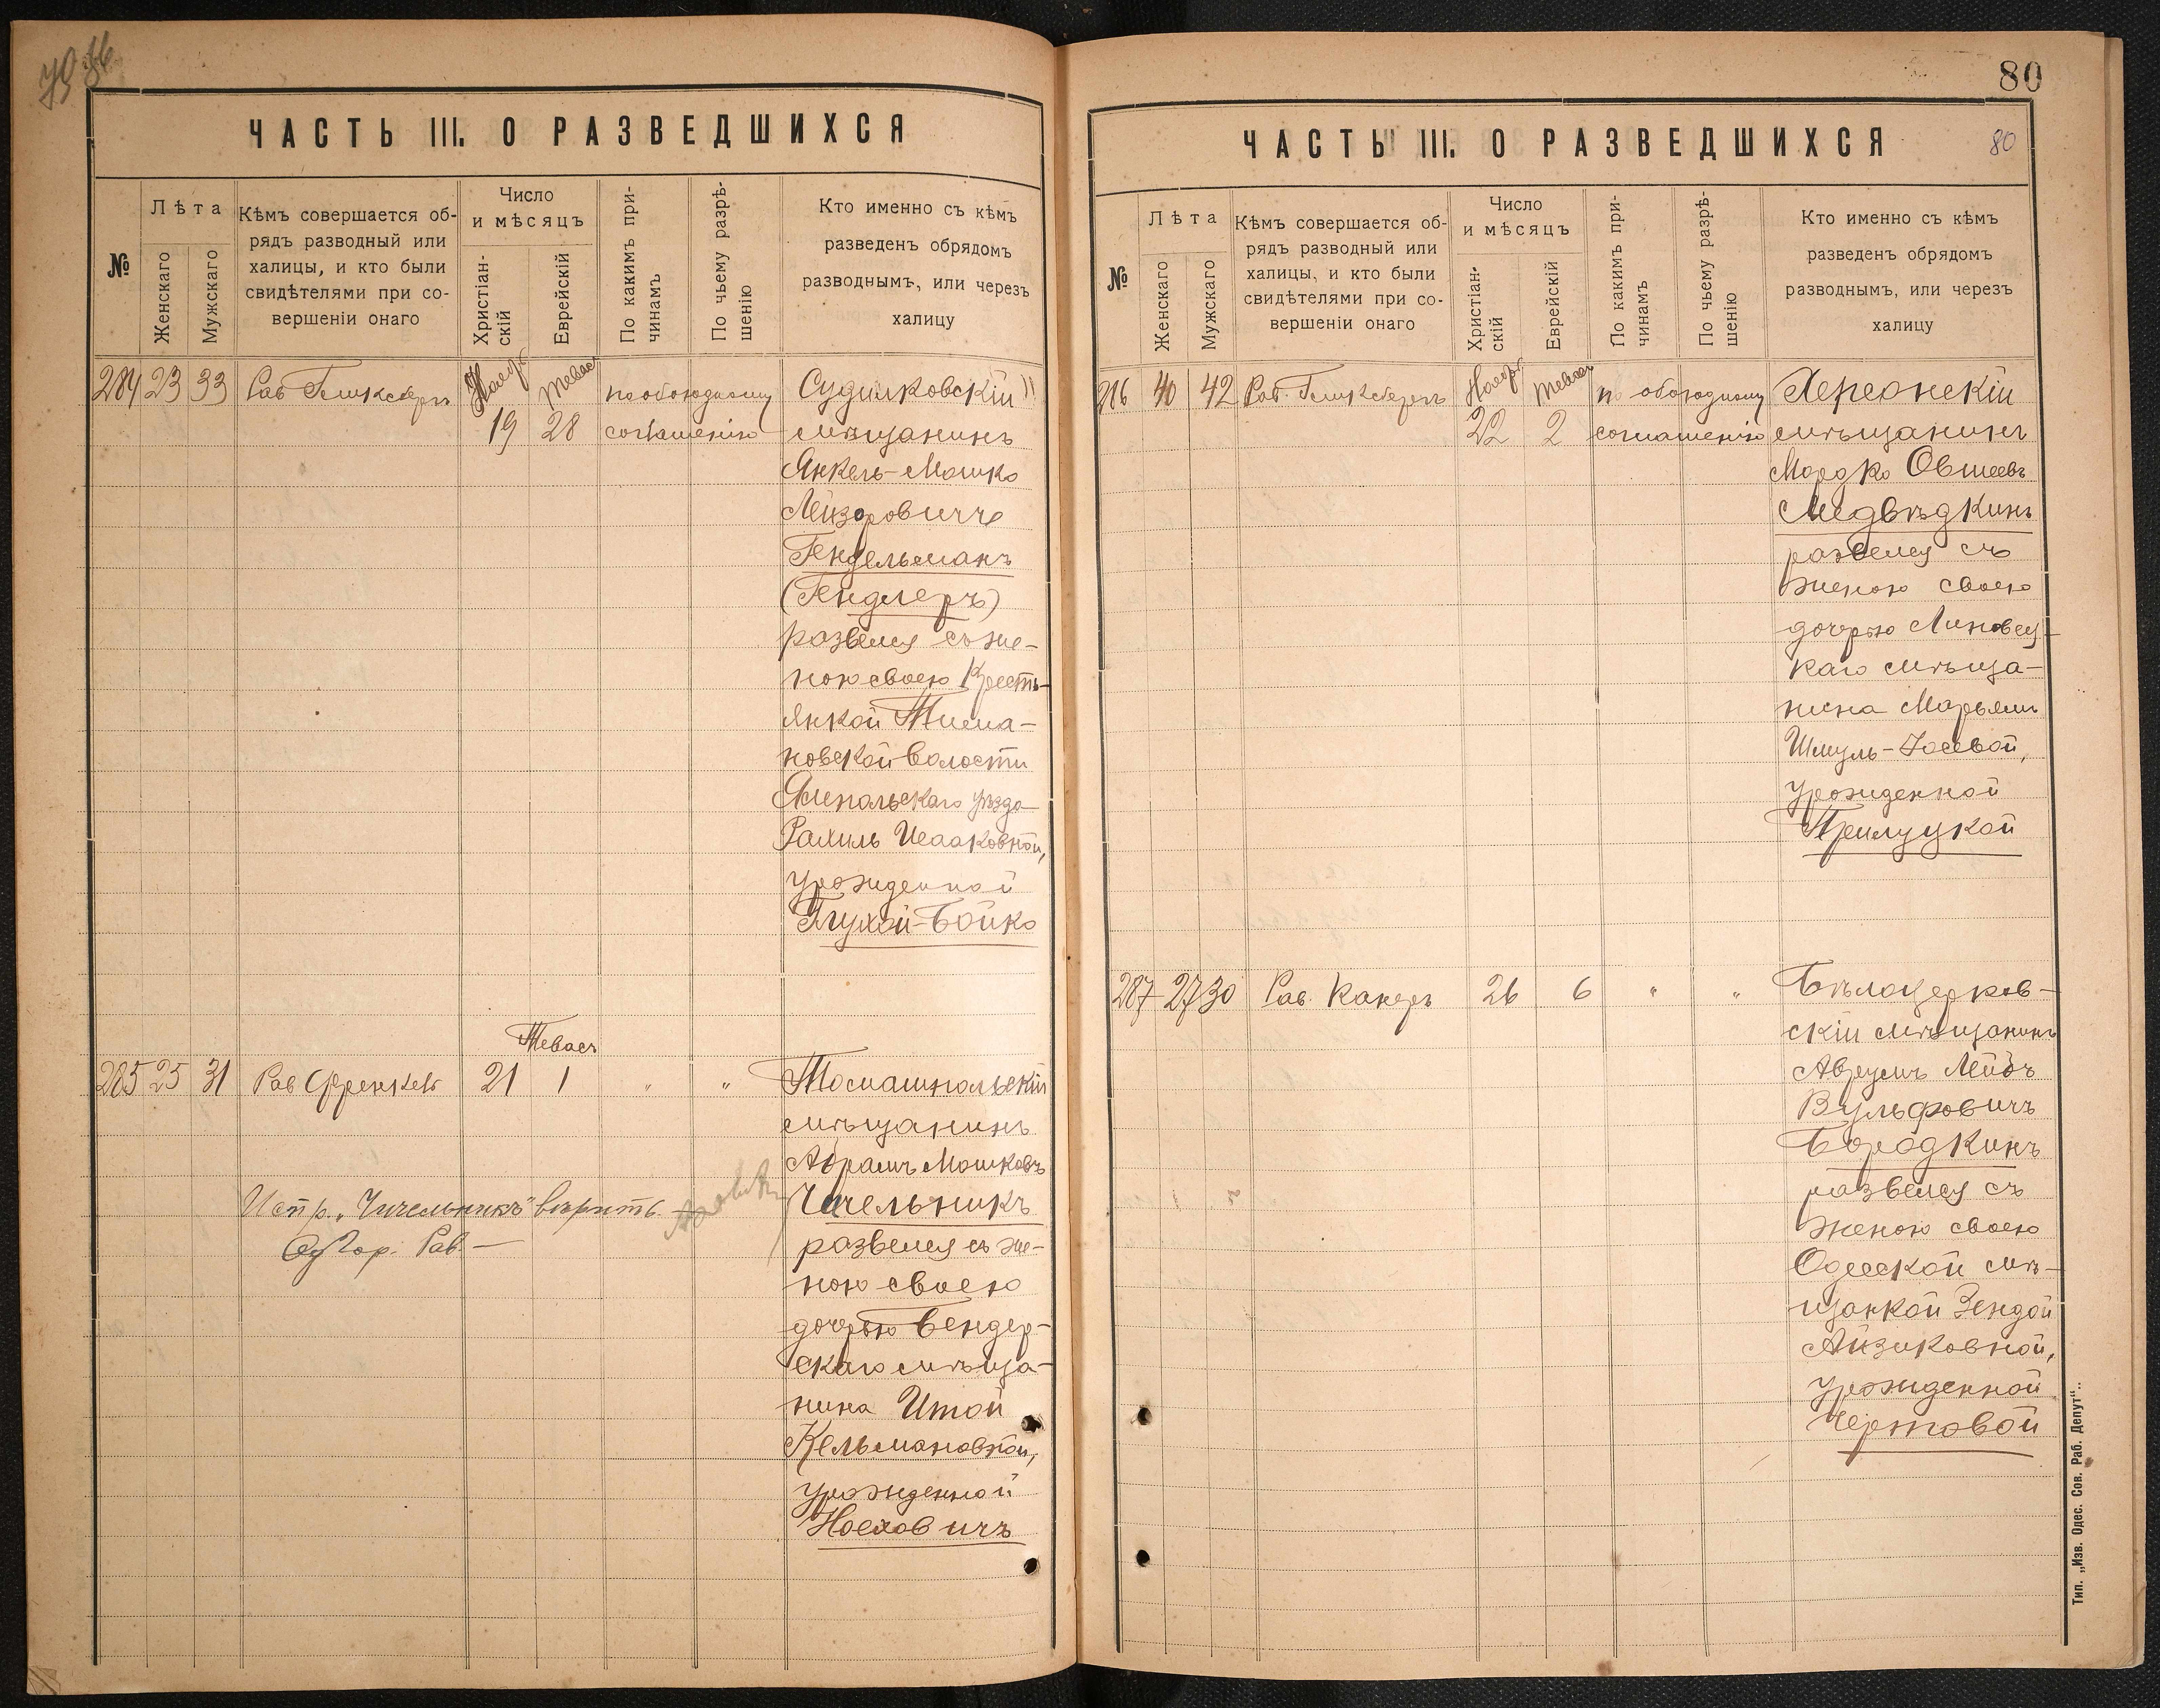 ЧАСТЬ III. О РАЗВЕДШИХСЯ
№
Лѣта
Женскаго
Мужскаго
Кѣмъ совершается об-
рядъ разводный или
халицы, и кто были
свидѣтелями при со-
вершеніи онаго
Число
и мѣсяцъ
Христіан-
скій
Еврейскій
По какимъ при-
чинамъ
По чьему разрѣ-
шенію
Кто именно съ кѣмъ
разведенъ обрядомъ
разводнымъ, или через
халицу
284 23 33 Рав Гликсберг Ноябр Тевас по обоюдному Судилковскій
19 28 соглашению мѣщанинъ
Янкель-Мошко
Лейзоровичъ
Гендельманъ
(Гендлеръ)
развелся съ же-
ною своею Кресть-
янкой Тима-
новской волости
Ямпольскаго уѣзда
Рахиль Исааковной,
урожденной
Глухой-Бойко
Тевас
285 25 31 Рав Френкель 21 1 " " Томашпольскій
мѣщанинъ
Абрамъ Мошковъ
Чичельникъ
Испр. „Чичельникъ" вѣрить.
Од Гор. Рав. —
развелся съ же-
ною своею
дочерью Бендер-
скаго мѣща-
нина Итой
Кельмановной,
урожденной
Ноехович
80
ЧАСТЬ III. О РАЗВЕДШИХСЯ
80
№
Лѣта
Женскаго
Мужскаго
Кѣмъ совершается об-
рядъ разводный или
халицы, и кто были
свидѣтелями при со-
вершеніи онаго
Число
и мѣсяцъ
Христіан-
скій
Еврейскій
По какимъ при-
чинамъ
По чьему разрѣ-
шенію
Кто именно съ кѣмъ
разведенъ обрядомъ
разводнымъ, или черезъ
халицу
286 40 42 Рав. Гликсберг Ноябр Тевас по обоюдному Херсонскій
22 2 соглашенію мѣщанинъ
Мордко Овшеевъ
Медвѣдкинъ
развелся съ
женою своею
дочерью Липовец-
каго мѣща-
нина Марьям
Шмуль-Іосевой,
урожденной
Прилуцкой
287 27 30 Рав. Канеръ 26 6 " " Бѣлоцерков-
скій мѣщанинъ
Аврумъ Лейбъ
Вульфовичъ
Бородкинъ
развелся съ
женою своею
Одесской мѣ-
щанкой Зендой
Айзиковной,
урожденной
Чертовой
Тип. „Изв. Одес. Сов. Раб. Депут".